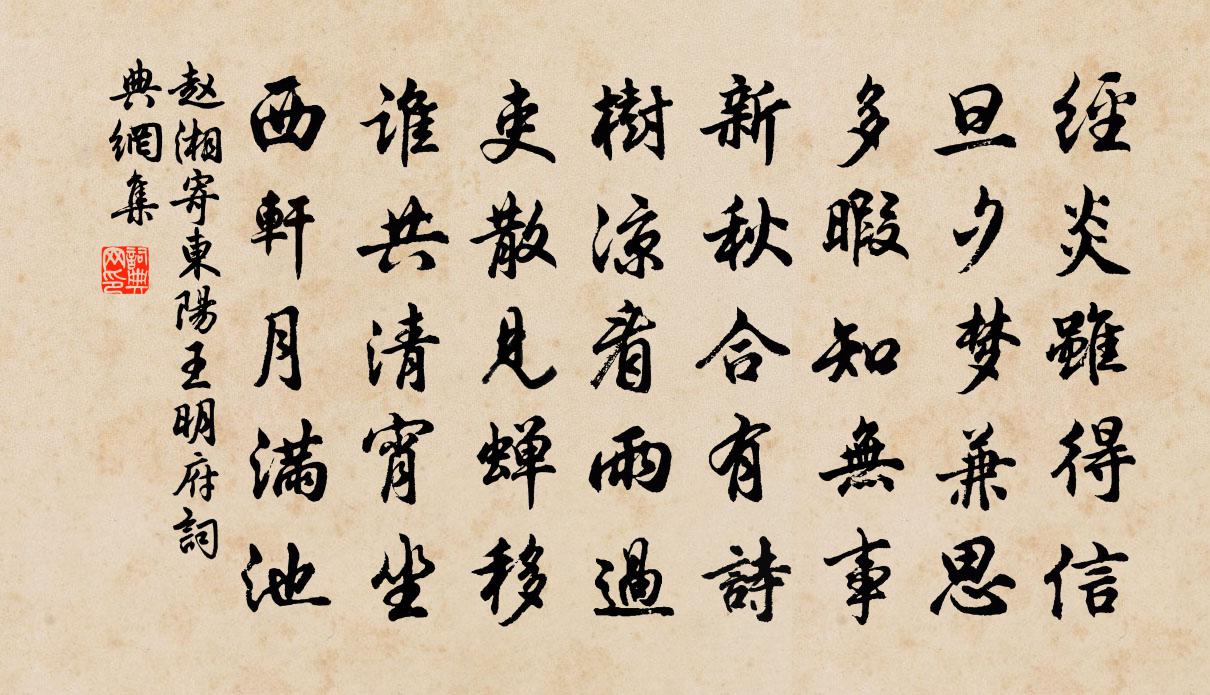 經炎雖得信
旦夕梦兼思
多暇知無事
新秋合有詩
樹凉看雨過
吏散見蝉移
谁共清宵坐
西軒月满池
赵湘寄東陽王明府詞
典網集
詞典
网印